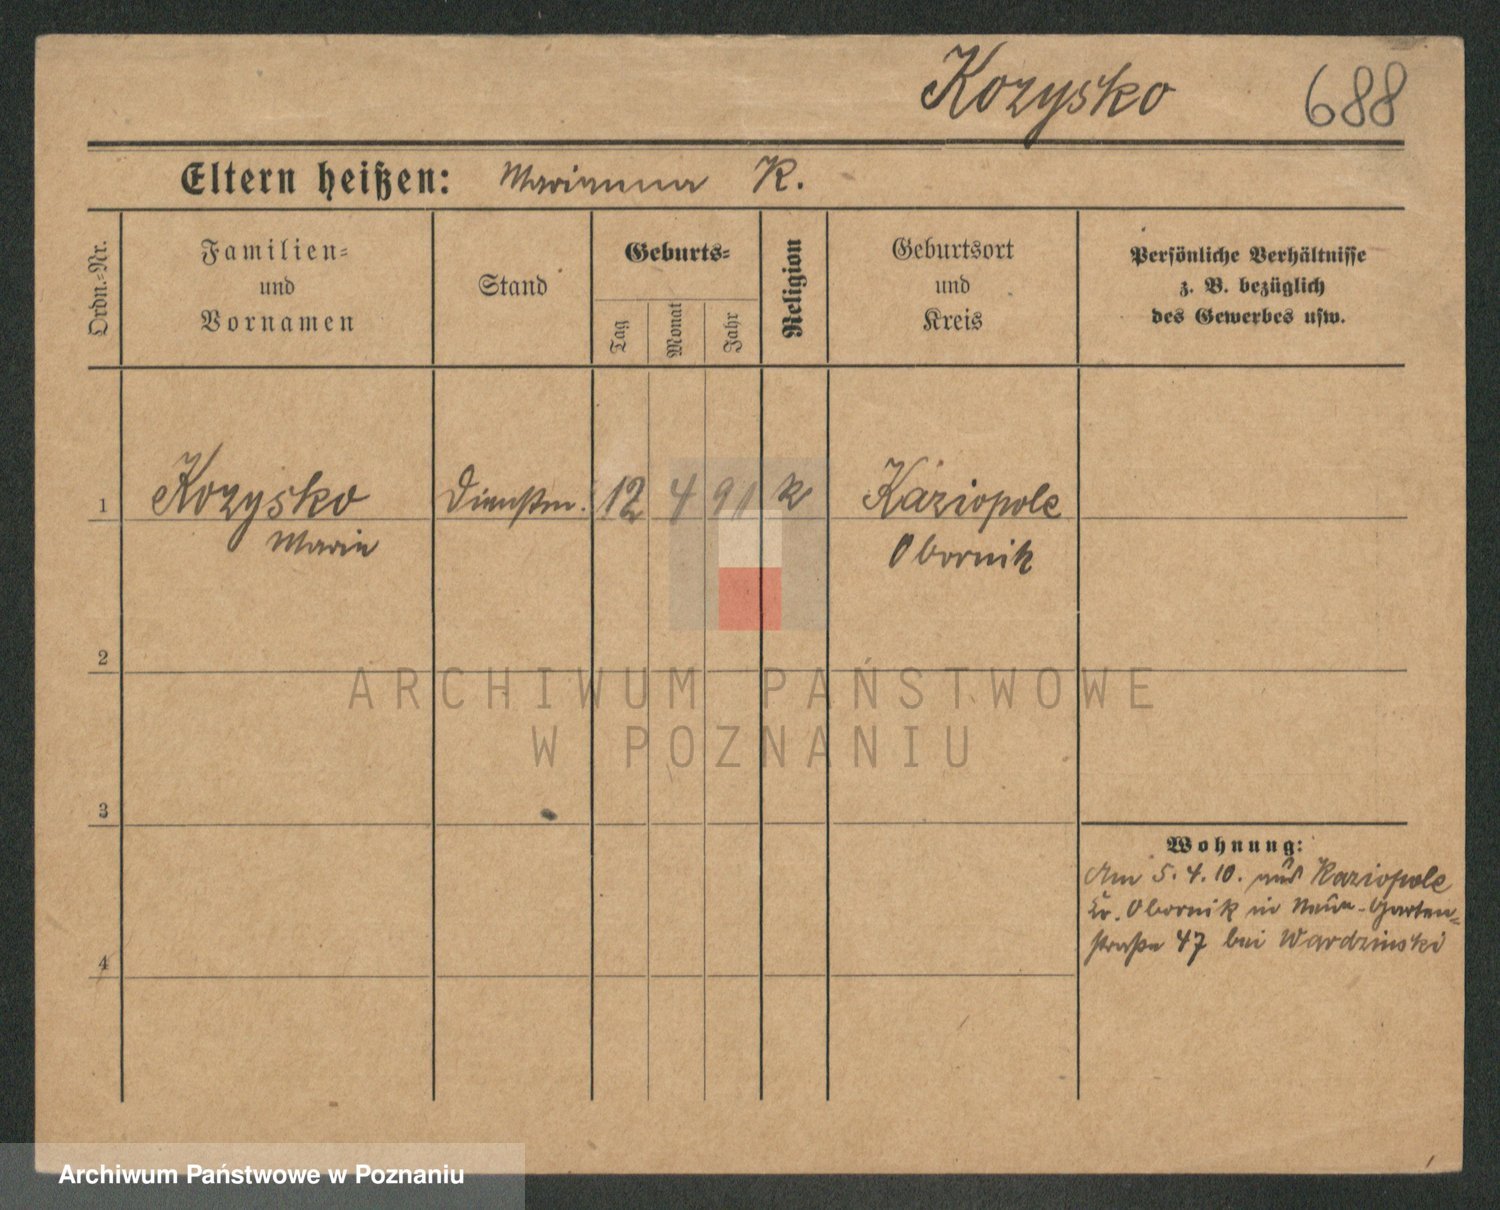 Kozysko 688
Eltern heißen: Marianna K.
Ordn.=Nr.
Familien=
und
Vornamen
Stand
Geburts=
Tag
Monat
Jahr
Religion
Geburtsort
und
Kreis
Persönliche Verhältnisse
z. B. bezüglich
des Gewerbes usw.
1 Kozysko Dienstm. 12 4 91 k Kaziopole
Marie Obornik
2
3
4
Wohnung:
Am 5. 4. 10. aus Kaziopole
Kr. Obornik in Neue-Garten=
straße 47 bei Wardzinski
ARCHIWUM PAŃSTWOWE
W POZNANIU
Archiwum Państwowe w Poznaniu